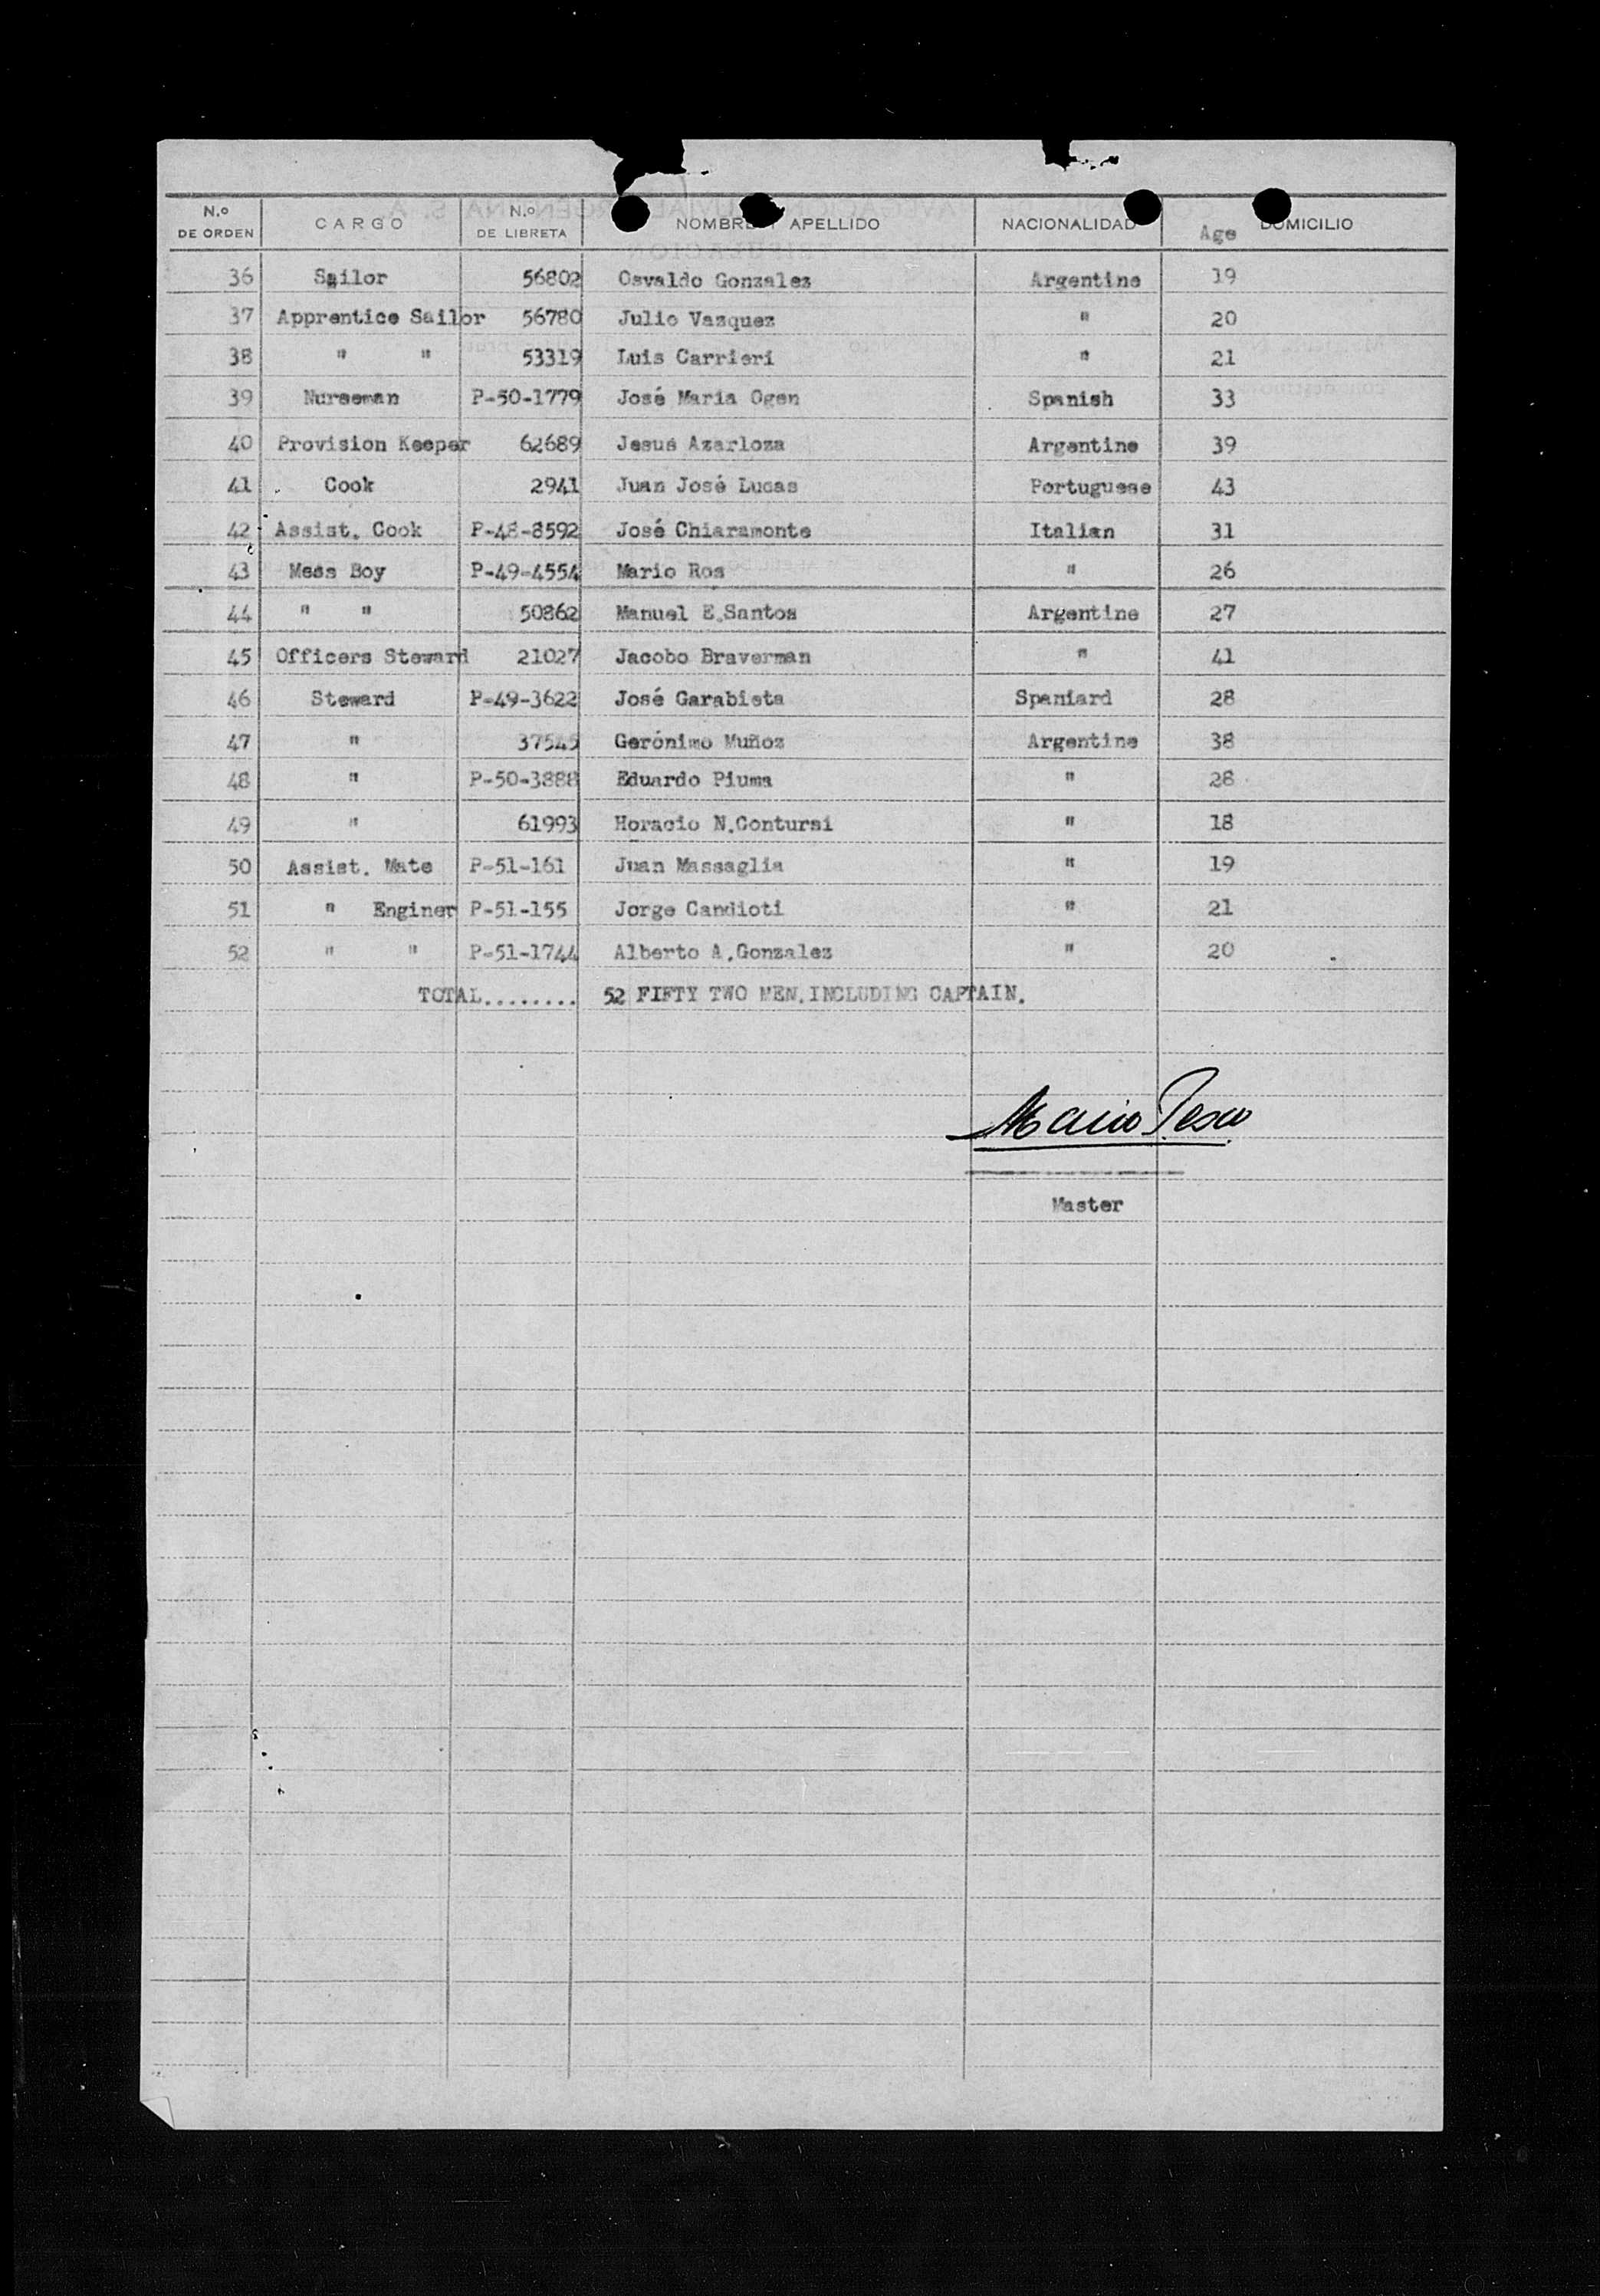 N.º DE ORDEN CARGO N.º DE LIBRETA NOMBRE Y APELLIDO NACIONALIDAD Age DOMICILIO
36 Sailor 56802 Osvaldo Gonzalez Argentine 19
37 Apprentice Sailor 56780 Julio Vazquez " 20
38 " " 53319 Luis Carrieri " 21
39 Nurseman P-50-1779 José Maria Ogen Spanish 33
40 Provision Keeper 62689 Jesus Azarloza Argentine 39
41 Cook 2941 Juan José Lucas Portuguese 43
42 Assist. Cook P-48-8592 José Chiaramonte Italian 31
43 Mess Boy P-49-4554 Mario Ros " 26
44 " " 50862 Manuel E.Santos Argentine 27
45 Officers Steward 21027 Jacobo Braverman " 41
46 Steward P-49-3622 José Garabieta Spaniard 28
47 " 37545 Gerónimo Muñoz Argentine 38
48 " P-50-3888 Eduardo Piuma " 28
49 " 61993 Horacio N.Contursi " 18
50 Assist. Mate P-51-161 Juan Massaglia " 19
51 " Enginer P-51-155 Jorge Candioti " 21
52 " " P-51-1744 Alberto A.Gonzalez " 20
TOTAL........ 52 FIFTY TWO MEN.INCLUDING CAPTAIN.
Master